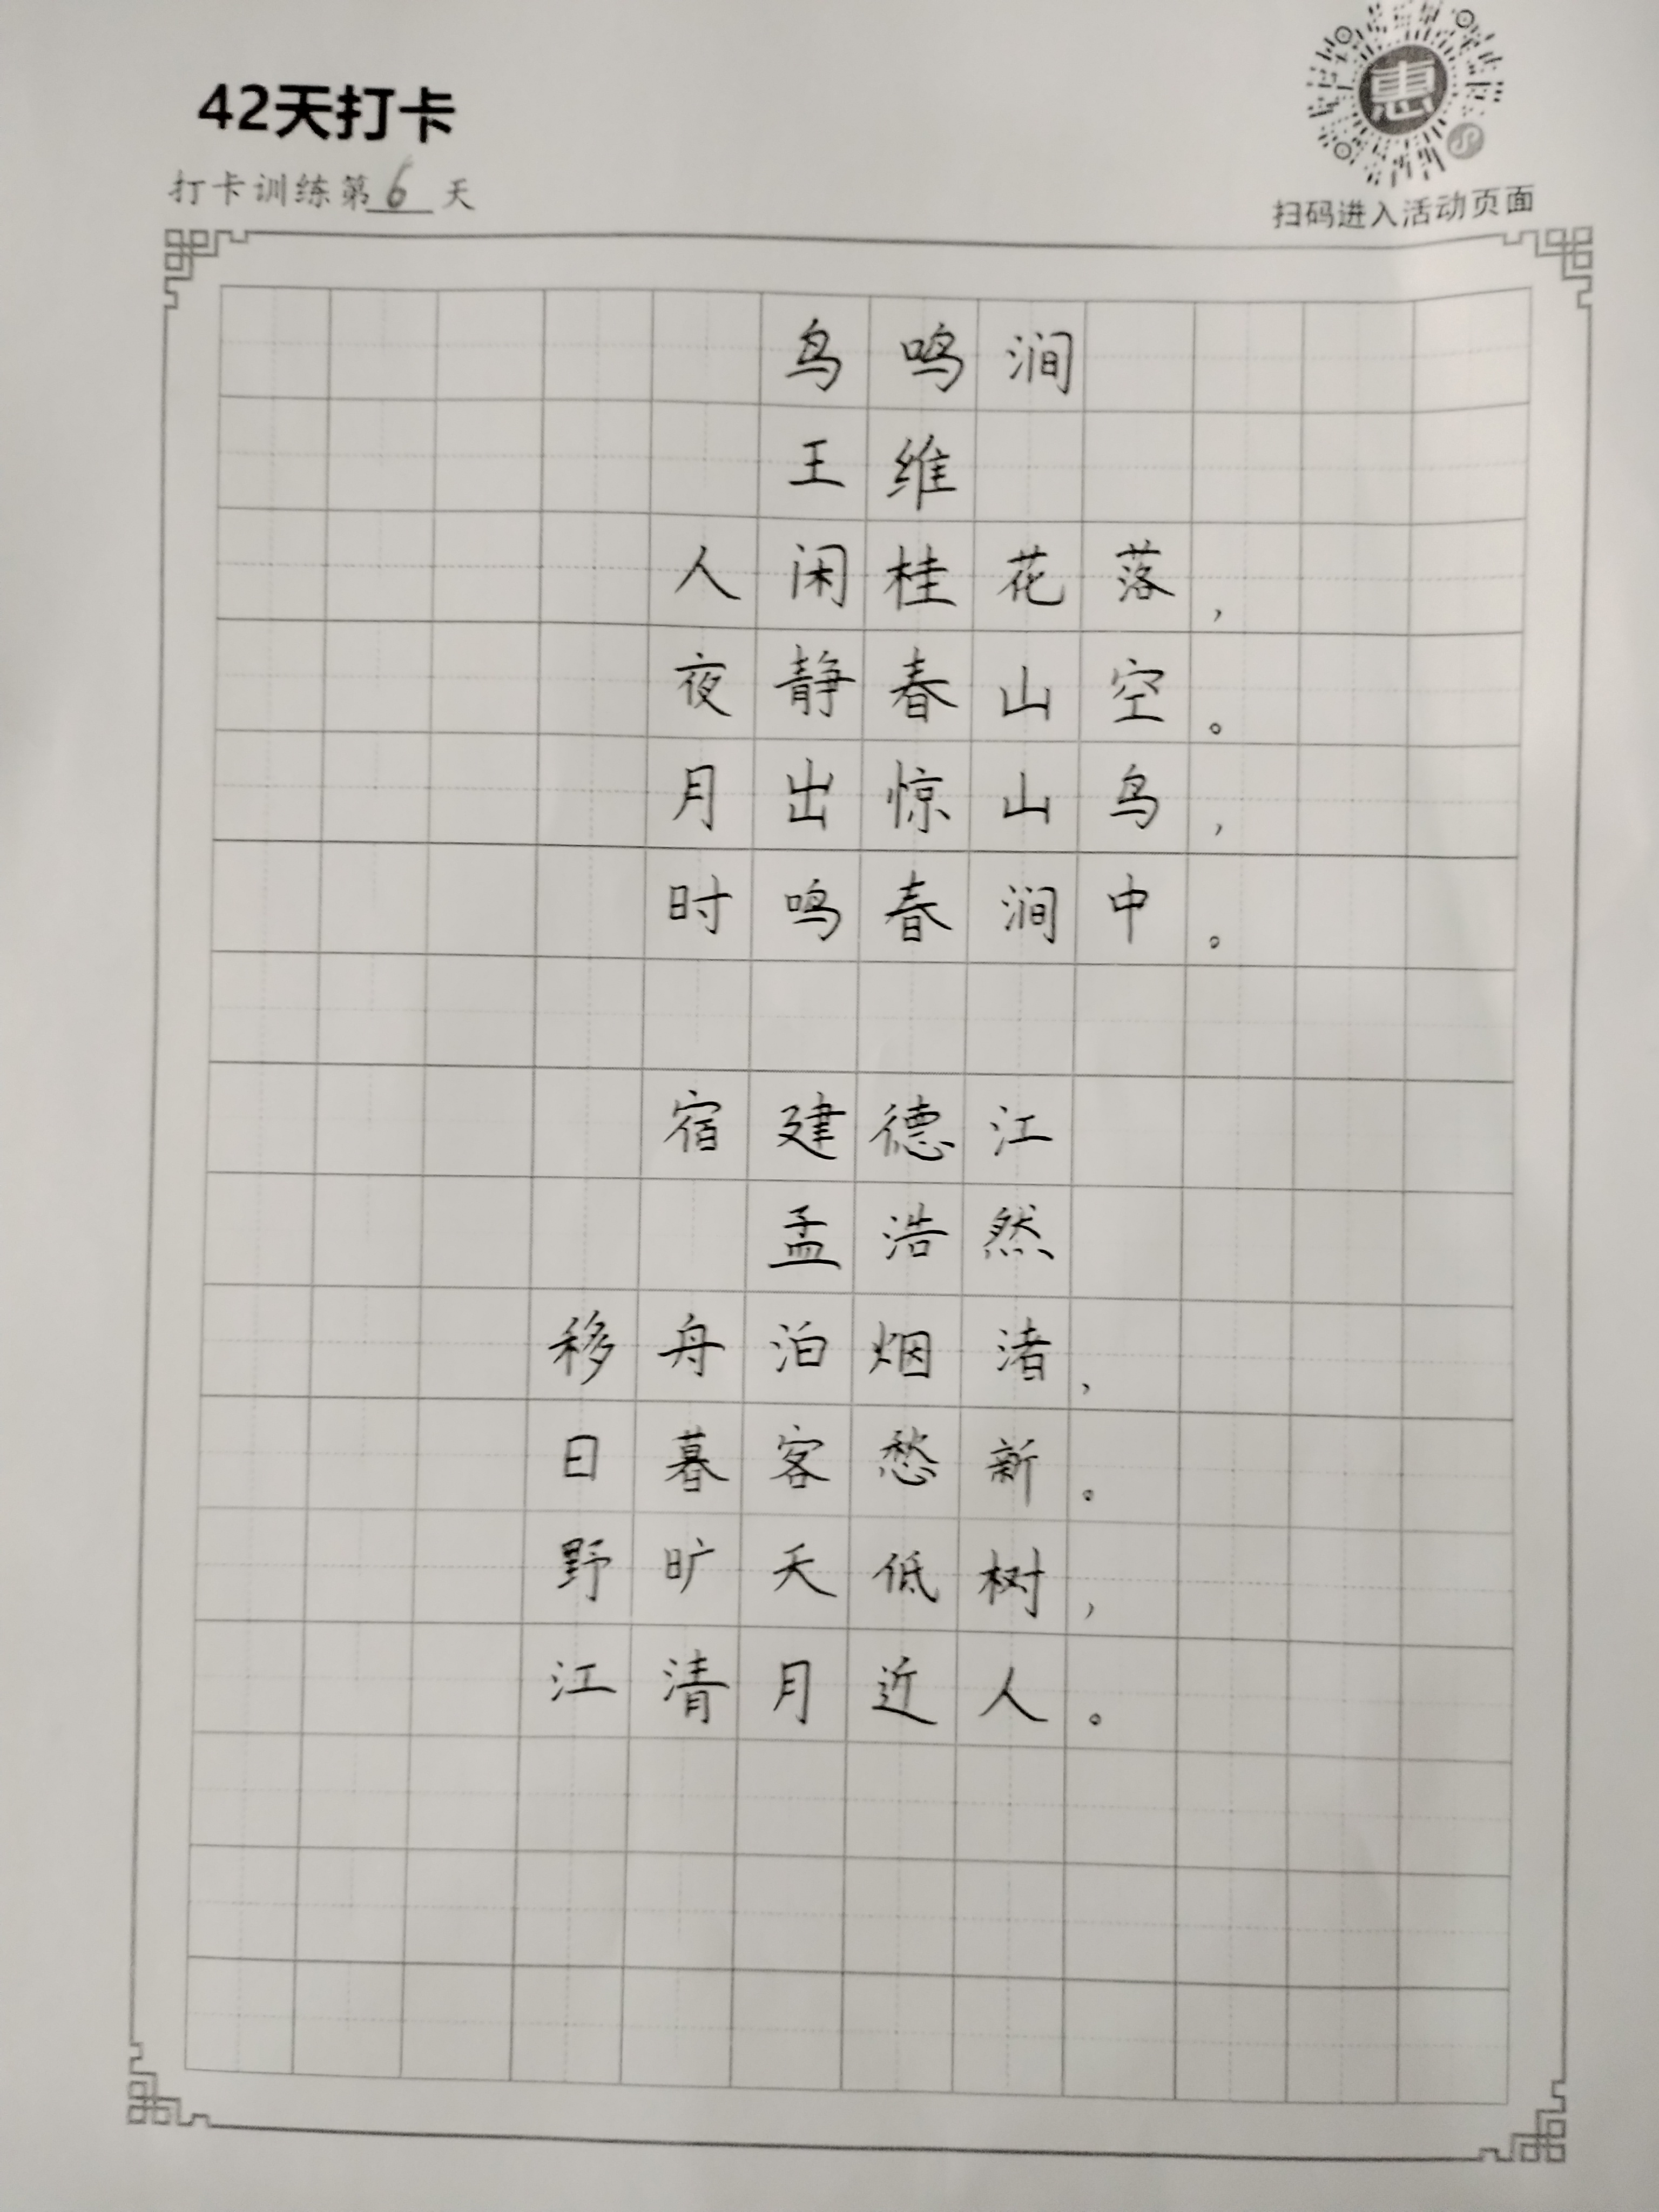 42天打卡
打卡训练第6天
惠
扫码进入活动页面
鸟鸣涧
王维
人闲桂花落，
夜静春山空。
月出惊山鸟，
时鸣春涧中。
宿建德江
孟浩然
移舟泊烟渚，
日暮客愁新。
野旷天低树，
江清月近人。